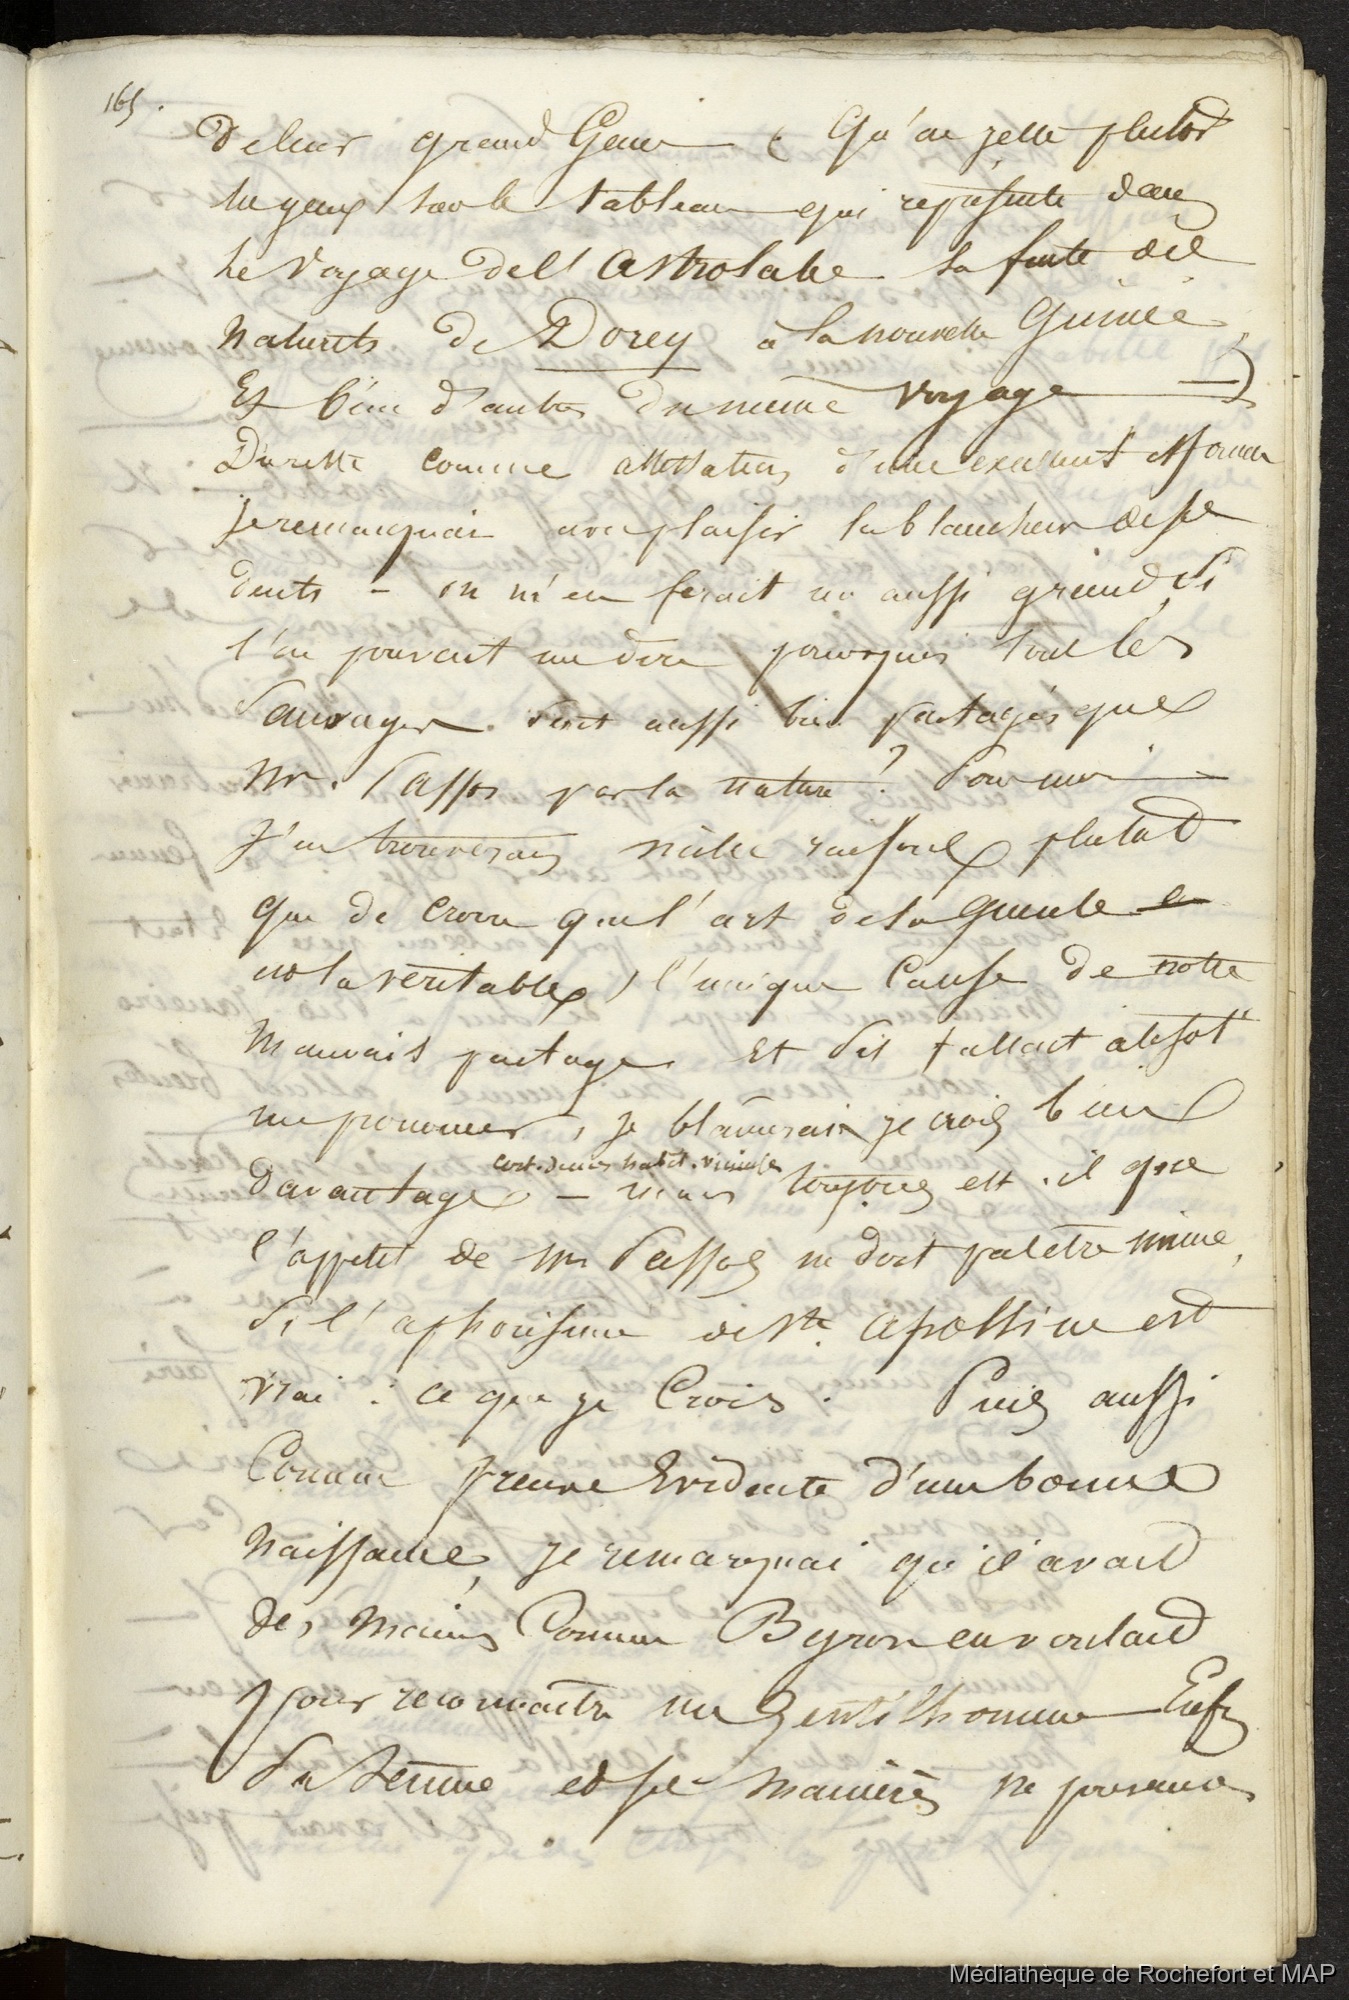 165.
de leur grand Genre ( Qu'on jette plutot
les yeux sur le tableau qui représente dans
le Voyage de l'Astrolabe la feinte des
naturels de Dorey à la nouvelle Guinée,
Et bien d'autres du meme voyage — )
Du reste comme attestation d'une excellent estomac
je remarquai avec plaisir la blancheur de ses
dents — on m'en ferait un aussi grand si
l'on pouvait me dire pourquoi tout les
Sauvages sont aussi bien partagés que
Mr. Passos par la nature ? Pour moi
J'en trouverais mille raisons plutot
que de croire que l'art de la Gueule
est la véritable, l'unique Cause de notre
Mauvais partage. Et s'il fallait absolt
me prononcer, je blâmerais je crois bien
davantage — mais toujours est.il que
l'appetit de Mr Passos ne doit pas être mince,
si l'aphorisme de Ste. Apolline est
vrai : ce que je Crois. Puis aussi
Comme preuve Evidente d'une bonne
Naissance, je remarquai qu'il avait
des mains Comme Byron en voulait
pour reconnaitre un Gentilhomme — Enfin
sa tenue et ses manières ne pouvaient
Médiathèque de Rochefort et MAP